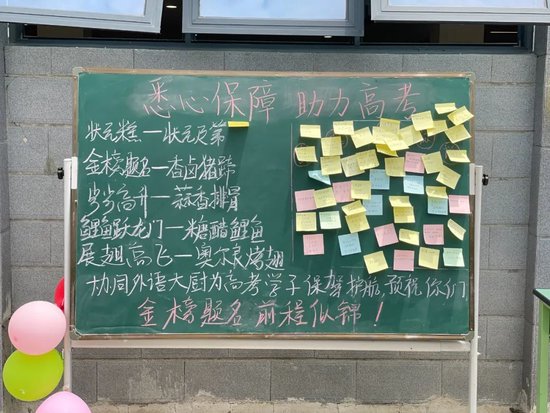 悉心保障 助力高考
状元糕—状元及第
金榜题名—香卤猪蹄
步步高升—蒜香排骨
鲤鱼跃龙门—糖醋鲤鱼
展翅高飞—奥尔良烤翅
协同外语大厨为高考学子保驾护航,预祝你们
金榜题名 前程似锦!